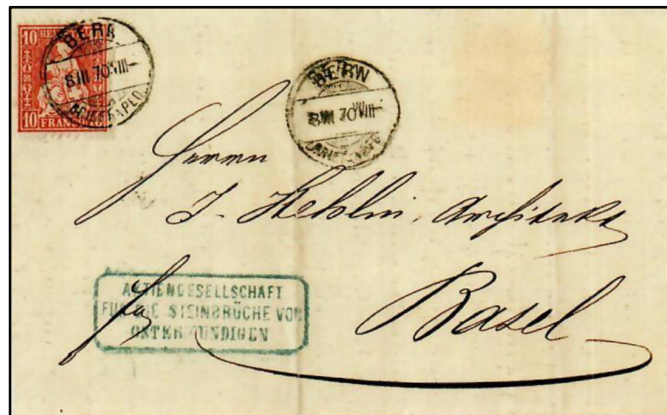 10 10
10 FRANCO 10
BERN
8 III 70 VIII–
BRIEF EXPED.
BERN
8 III 70 VIII–
BRIEF EXPED.
Herrn
J. Architekt
Basel
ACTIENGESELLSCHAFT
FÜR DIE STEINBRÜCHE VON
OSTERMUNDIGEN